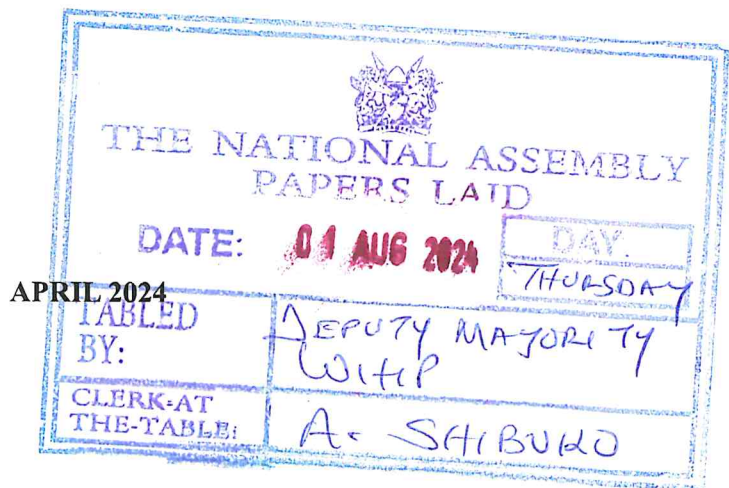 THE NATIONAL ASSEMBLY
PAPERS LAID
DATE: 01 AUG 2024 DAY.
THURSDAY
APRIL 2024
TABLED BY: DEPUTY MAJORITY WHIP
CLERK-AT THE-TABLE: A. SHIBUKO